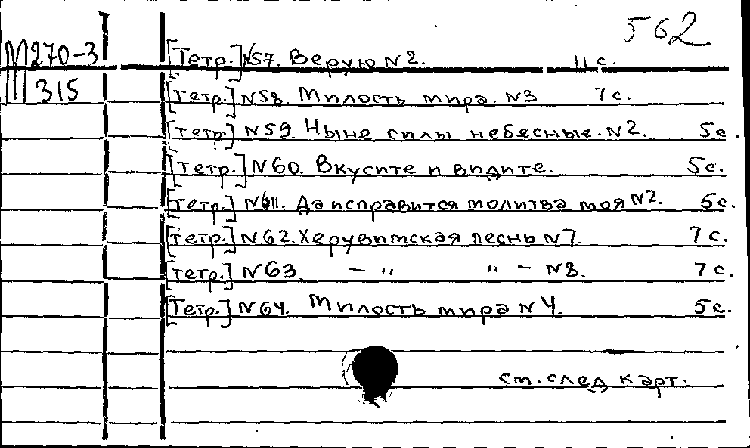 562
М270-3 [Тетр.] №57. Верую №2. 11с.
Ш 315 [Тетр.] №58. Милость мира. №3 7с.
[Тетр.] №59. Ныне силы небесные. №2. 5с.
[Тетр.] №60. Вкусите и видите. 5с.
[Тетр.] №61. Да исправится молитва моя №2. 5с.
[Тетр.] №62. Херувимская песнь №7. 7с.
[Тетр.] №63. — " " — №8. 7с.
[Тетр.] №64. Милость мира №4. 5с.
см. след карт.